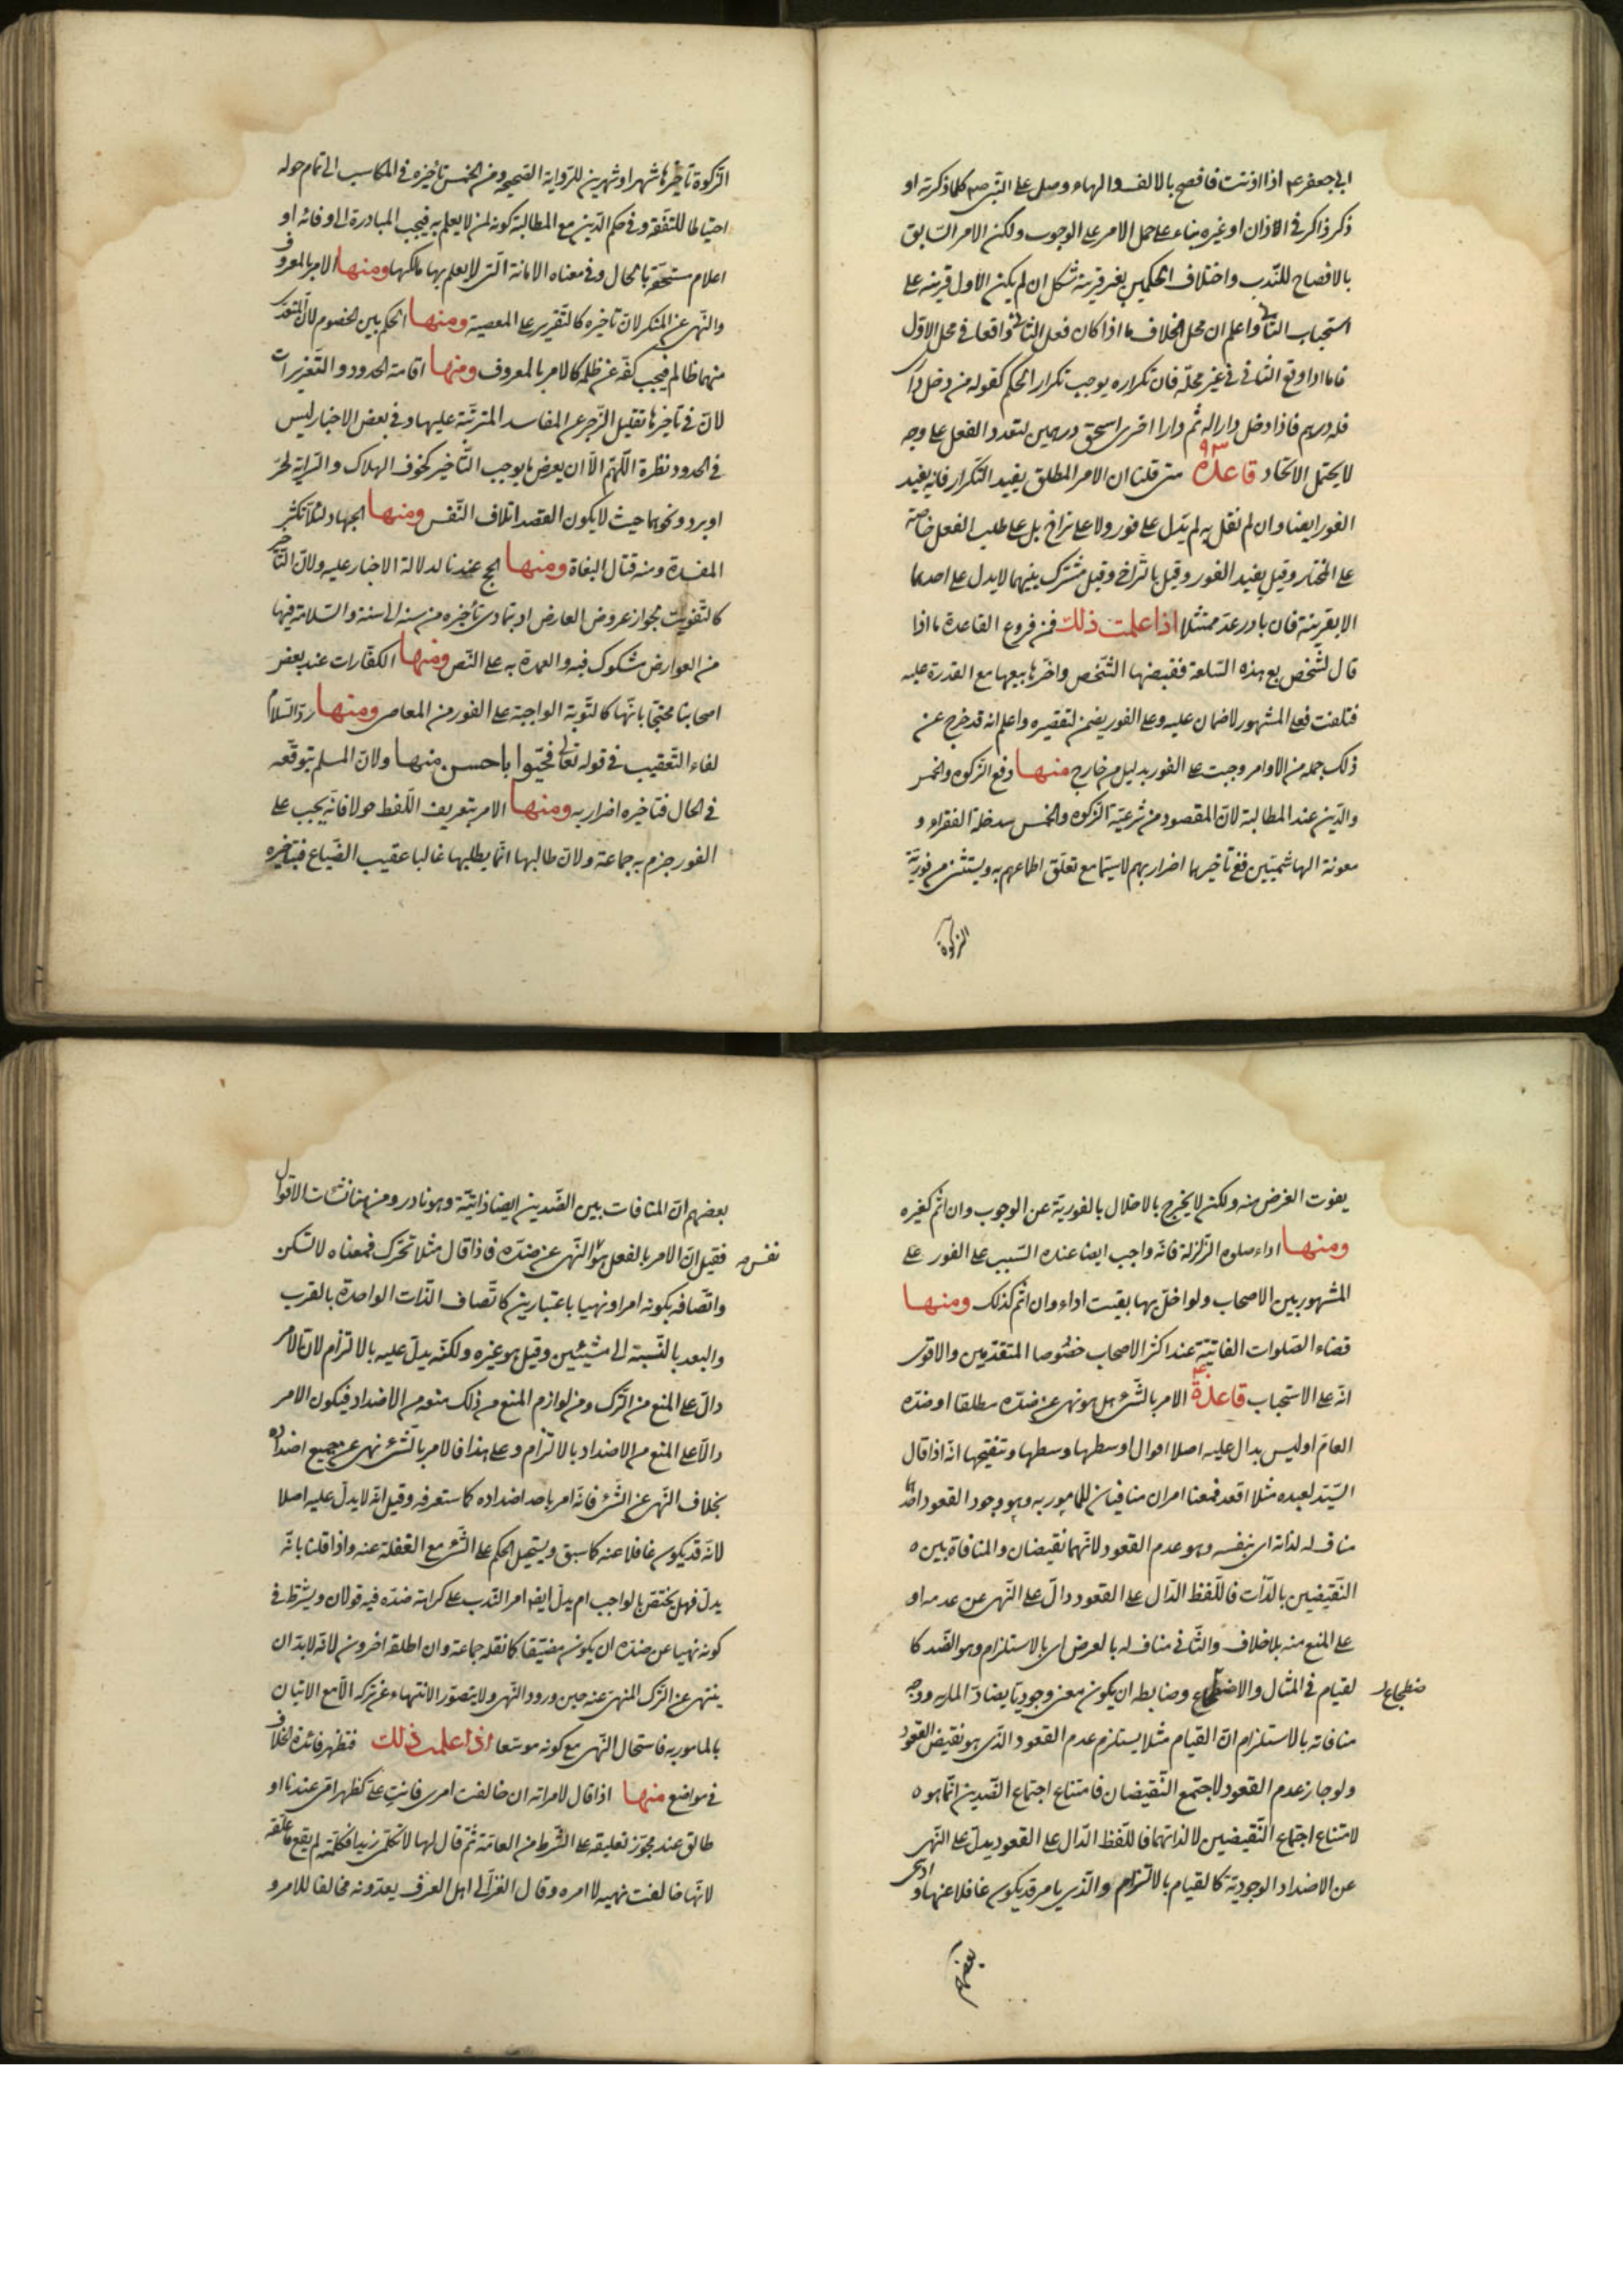 ابي جعفر ع اذا اذنت فافصح بالالف والهاء وصل على النبي ص كلما ذكرته او
ذكر ذاكر في الاذان او غيره بناء على حمل الامر على الوجوب ولكن الامر السابق
بالافصاح للندب واختلاف الحكمين بغير قرينة مشكل ان لم يكن الاول قرينة على
استحباب الثاني واعلم ان محل الخلاف ما اذا كان فعل الثاني واقعا في محل الاول
فاما اذا وقع الثاني في غير محله فان تكراره يوجب تكرار الحكم كقوله من دخل داري
فله درهم فاذا دخل دارا له ثم دارا اخرى استحق درهمين لتعدد الفعل على وجه
لا يحتمل الاتحاد قاعدة ٩٣ متى قلنا ان الامر المطلق يفيد التكرار فانه يفيد
الفور ايضا وان لم نقل به لم يدل على فور ولا على تراخ بل على طلب الفعل خاصة
على المختار وقيل يفيد الفور وقيل بالتراخي وقيل مشترك بينهما لا يدل على احدهما
الا بقرينة فان بادر عد ممتثلا اذا علمت ذلك فمن فروع القاعدة ما اذا
قال لشخص بع هذه السلعة فقبضها الشخص واخر بيعها مع القدرة عليه
فتلفت فعلى المشهور لا ضمان عليه وعلى الفور يضمن لتقصيره واعلم انه قد خرج عن
ذلك جملة من الاوامر وجبت على الفور بدليل من خارج منها دفع الزكوة والخمس
والدين عند المطالبة لان المقصود من شرعية الزكوة والخمس سد خلة الفقراء و
معونة الهاشميين ففي تأخيرهما اضرار بهم لا سيما مع تعلق اطماعهم به ويستثنى من فورية
الزكوة
الزكوة تأخيرها شهرا او شهرين للرواية الصحيحة ومن الخمس تأخيره في المكاسب الى تمام حوله
احتياطا للنفقة وفي حكم الدين مع المطالبة كونه لمن لا يعلم به فيجب المبادرة الى وفائه او
اعلام مستحقه بالحال وفي معناه الامانة التي لا يعلم بها مالكها ومنها الامر بالمعروف
والنهي عن المنكر لان تاخيره كالتقرير على المعصية ومنها الحكم بين الخصوم لان المتعدي
منهما ظالم فيجب كفه عن ظلمه كالامر بالمعروف ومنها اقامة الحدود والتعزيرات
لان في تأخيرها تقليل الزجر عن المفاسد المترتبة عليها وفي بعض الاخبار ليس
في الحدود نظرة اللهم الا ان يعرض ما يوجب التأخير كخوف الهلاك والسراية لحر
او برد ونحوهما حيث لا يكون القصد اتلاف النفس ومنها الجهاد لئلا تكثر
المفسدة ومنه قتال البغاة ومنها الحج عندنا لدلالة الاخبار عليه ولان التأخير
كالتفويت لجواز عروض العارض او بتمادي تأخيره من سنة الى سنة والسلامة فيها
من العوارض مشكوك فيه والعمدة به على النص ومنها الكفارات عند بعض
اصحابنا محتجا بانها كالتوبة الواجبة على الفور من المعاصي ومنها رد السلام
لفاء التعقيب في قوله تعالى فحيوا باحسن منها ولان المسلم يتوقعه
في الحال فتاخيره اضرار به ومنها الامر بتعريف اللقطة حولا فانه يجب على
الفور جزم به جماعة ولان طالبها انما يطلبها غالبا عقيب الضياع فبتأخيره
يفوت الغرض منه ولكن لا يخرج بالاخلال بالفورية عن الوجوب وان اثم كغيره
ومنها اداء صلوة الزلزلة فانه واجب ايضا عند السبب على الفور على
المشهور بين الاصحاب ولو اخل بها بقيت اداء وان اثم كذلك ومنها
قضاء الصلوات الفائتة عند اكثر الاصحاب خصوصا المتقدمين والاقوى
انه على الاستحباب قاعدة الامر بالشيء هل هو نهي عن ضده مطلقا او ضده
العام او ليس بدال عليه اصلا اقوال اوسطها وسطها وتنقيحها انه اذا قال
السيد لعبده مثلا اقعد فمعنا امران منافيان للمامور به وهو وجود القعود احدهما
مناف له لذاته اي بنفسه وهو عدم القعود لانهما نقيضان والمنافاة بين
النقيضين بالذات فاللفظ الدال على القعود دال على النهي عن عدمه او
على المنع منه بلا خلاف والثاني مناف له بالعرض اي بالاستلزام وهو الضد كا
لقيام في المثال والاضطجاع وضابطه ان يكون معنى وجوديا يضاد المامور به ووجه
ضطجاع
منافاته بالاستلزام ان القيام مثلا يستلزم عدم القعود الذي هو نقيض القعود
ولو جاز عدم القعود لاجتمع النقيضان فامتناع اجتماع الضدين انما هو
لامتناع اجتماع النقيضين لا لذاتهما فاللفظ الدال على القعود يدل على النهي
عن الاضداد الوجودية كالقيام بالالتزام والذي يامر قد يكون غافلا عنها وادعى
بعضهم
بعضهم ان المنافات بين الضدين ايضا ذاتية وهو نادر ومن هنا نشات الاقوال
فقيل ان الامر بالفعل هو النهي عن ضده فاذا قال مثلا تحرك فمعناه لا تسكن
نفس
واتصافه بكونه امرا ونهيا باعتبارين كاتصاف الذات الواحدة بالقرب
والبعد بالنسبة الى شيئين وقيل هو غيره ولكنه يدل عليه بالالتزام لان الامر
دال على المنع من الترك ومن لوازم المنع من ذلك منعه من الاضداد فيكون الامر
دالا على المنع من الاضداد بالالتزام وعلى هذا فالامر بالشيء نهي عن جميع اضداده
بخلاف النهي عن الشيء فانه امر باحد اضداده كما ستعرفه وقيل انه لا يدل عليه اصلا
لانه قد يكون غافلا عنه كما سبق ويستحيل الحكم على الشيء مع الغفلة عنه واذا قلنا بانه
يدل فهل يختص بالواجب ام يدل ايضا امر الندب على كراهة ضده فيه قولان ويشترط في
كونه نهيا عن ضده ان يكون مضيقا كما نقله جماعة وان اطلقه اخرون لانه لا بد ان
ينتهي عن الترك المنهي عنه حين ورود النهي ولا يتصور الانتهاء عن تركه الا مع الاتيان
بالمامور به فاستحال النهي مع كونه موسعا اذا علمت ذلك فتظهر فائدة الخلاف
في مواضع منها اذا قال لامراته ان خالفت امري فانت علي كظهر امي عندنا او
طالق عند مجوز تعليقه على الشرط من العامة ثم قال لها لا تكلمي زيدا فكلمته لم يقع ما علقه
لانها خالفت نهيه لا امره وقال الغزالي اهل العرف يعدونه مخالفا للامر و